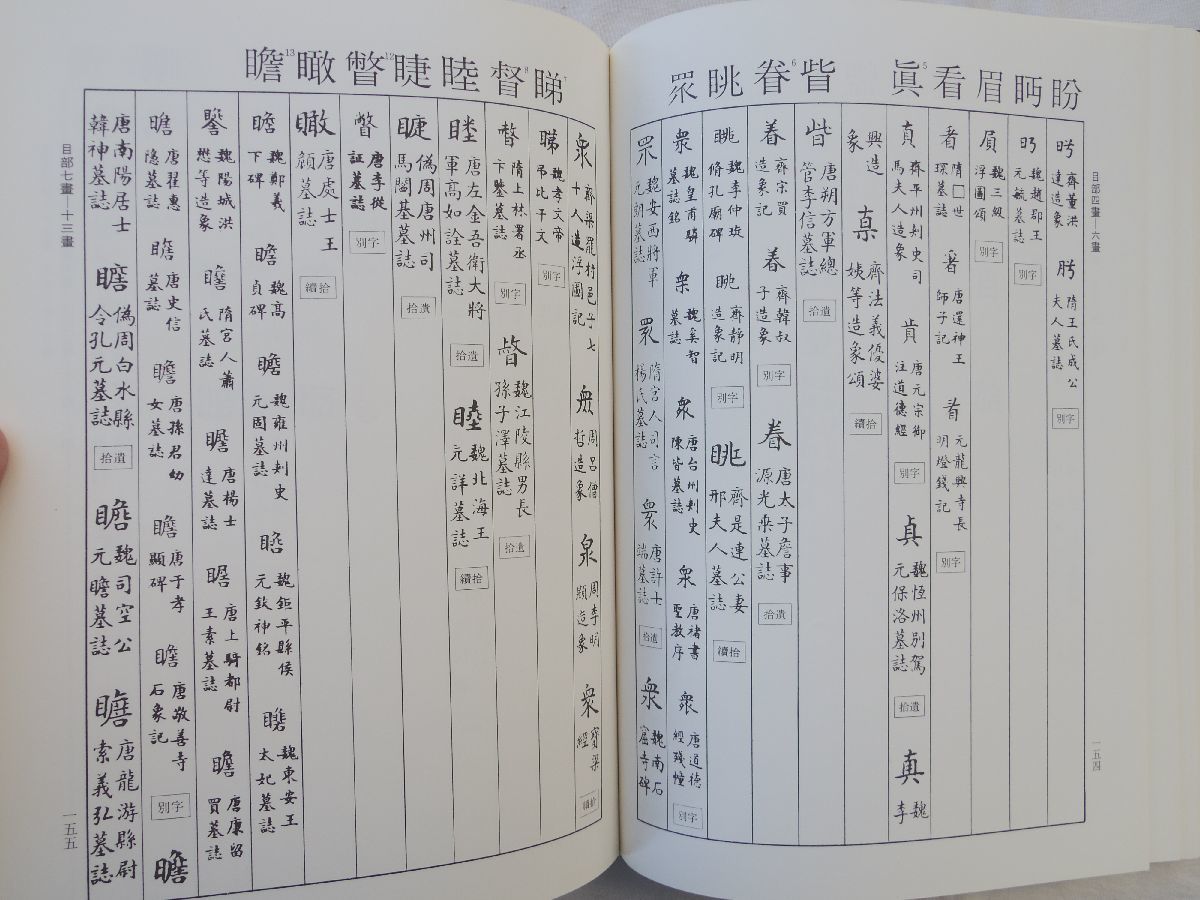 目部四畫—六畫
一五四
盼眄眉看眞5 眥眷6眺眾
齊董洪達造象 隋王氏成公夫人墓誌 別字
魏趙郡王元毓墓誌 別字
魏三級浮圖頌 別字
隋□世琛墓誌 唐還神王師子記 元龍興寺長明燈錢記 別字
真 齊平州刺史司馬夫人造象 唐元宗御注道德經 別字 貞 魏恆州別駕元保洛墓誌 拾遺 真 魏李
興造象 齊法義優婆姨等造象頌 續拾
眥 唐朔方軍總管李信墓誌 拾遺
眷 齊宋買造象記 齊韓叔子造象 別字 眷 唐太子詹事源光乘墓誌 拾遺
眺 魏李仲琁脩孔廟碑 眺 齊靜明造象記 別字 齊是連公妻邢夫人墓誌 續拾
衆 魏皇甫驎墓誌銘 衆 魏奚智墓誌 衆 唐台州刺史陳皆墓誌 衆 唐褚書聖教序 衆 唐道德經殘幢 別字
眾 魏安西將軍元朗墓誌 眾 隋宮人司言楊氏墓誌 唐許士端墓誌 拾遺 衆 魏南石窟寺碑
目部七畫—十三畫
一五五
睇7督8睦睫瞥12瞰瞻13
衆 齊梁罷村邑子七十人造浮圖記 周呂僧哲造象 周李明顯造象 衆 寶梁經 續拾
睇 魏孝文帝弔比干文 別字
督 隋上林署丞卞鑒墓誌 別字 督 魏江陵縣男長孫子澤墓誌 拾遺
睦 唐左金吾衛大將軍高如詮墓誌 拾遺 睦 魏北海王元詳墓誌 續拾
睫 偽周唐州司馬閻基墓誌 拾遺
瞥 唐李從証墓誌 別字
瞰 唐處士王顧墓誌 續拾
瞻 魏鄭羲下碑 瞻 魏高貞碑 瞻 魏雍州刺史元固墓誌 瞻 魏鉅平縣侯元欽神銘 瞻 魏東安王太妃墓誌
魏陽城洪懋等造象 瞻 隋宮人蕭氏墓誌 瞻 唐楊士達墓誌 瞻 唐上騎都尉王素墓誌 瞻 唐康留買墓誌
瞻 唐翟惠隱墓誌 瞻 唐史信墓誌 瞻 唐孫君幼女墓誌 瞻 唐于孝顯碑 瞻 唐敬善寺石象記 別字 瞻
唐南陽居士韓神墓誌 瞻 偽周白水縣令孔元墓誌 拾遺 瞻 魏司空公元瞻墓誌 瞻 唐龍游縣尉索義弘墓誌